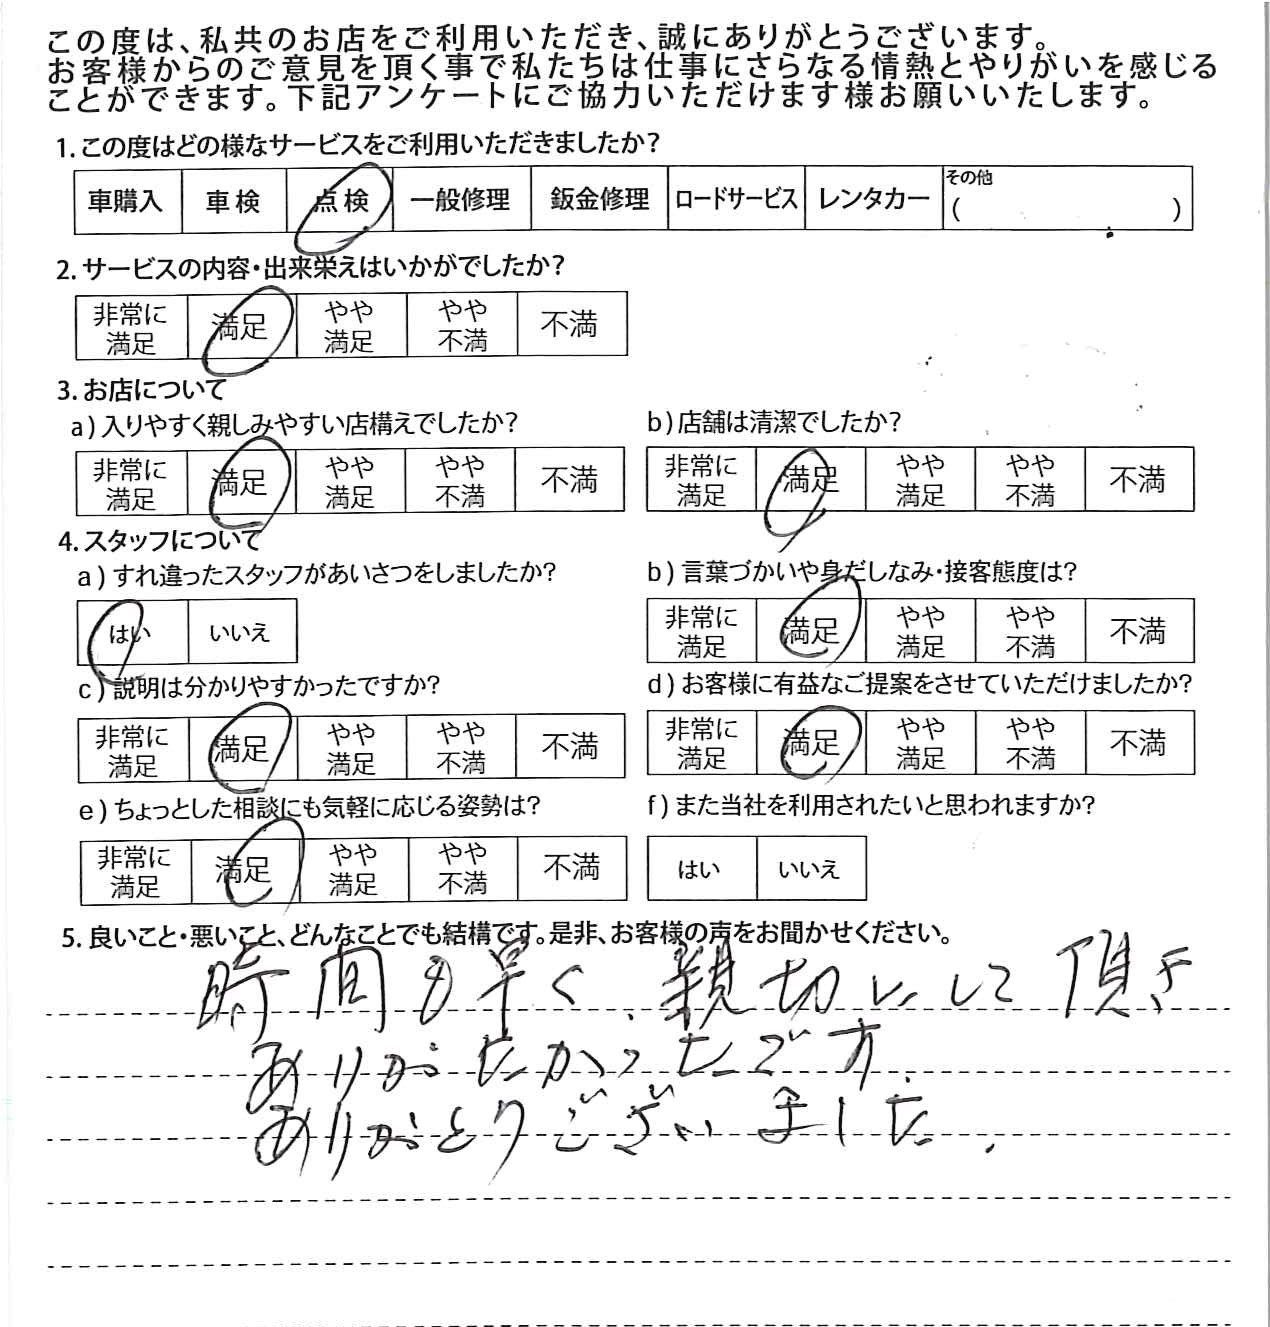 この度は、私共のお店をご利用いただき、誠にありがとうございます。
お客様からのご意見を頂く事で私たちは仕事にさらなる情熱とやりがいを感じる
ことができます。下記アンケートにご協力いただけます様お願いいたします。
1.この度はどの様なサービスをご利用いただきましたか？
車購入 車検 点検 一般修理 鈑金修理 ロードサービス レンタカー その他 (　　)
2.サービスの内容・出来栄えはいかがでしたか？
非常に満足 満足 やや満足 やや不満 不満
3.お店について
a)入りやすく親しみやすい店構えでしたか？
非常に満足 満足 やや満足 やや不満 不満
b)店舗は清潔でしたか？
非常に満足 満足 やや満足 やや不満 不満
4.スタッフについて
a)すれ違ったスタッフがあいさつをしましたか？
はい いいえ
b)言葉づかいや身だしなみ・接客態度は？
非常に満足 満足 やや満足 やや不満 不満
c)説明は分かりやすかったですか？
非常に満足 満足 やや満足 やや不満 不満
d)お客様に有益なご提案をさせていただけましたか？
非常に満足 満足 やや満足 やや不満 不満
e)ちょっとした相談にも気軽に応じる姿勢は？
非常に満足 満足 やや満足 やや不満 不満
f)また当社を利用されたいと思われますか？
はい いいえ
5.良いこと・悪いこと、どんなことでも結構です。是非、お客様の声をお聞かせください。
時間も早く、親切にして頂き
ありがたかったです。
ありがとうございました。